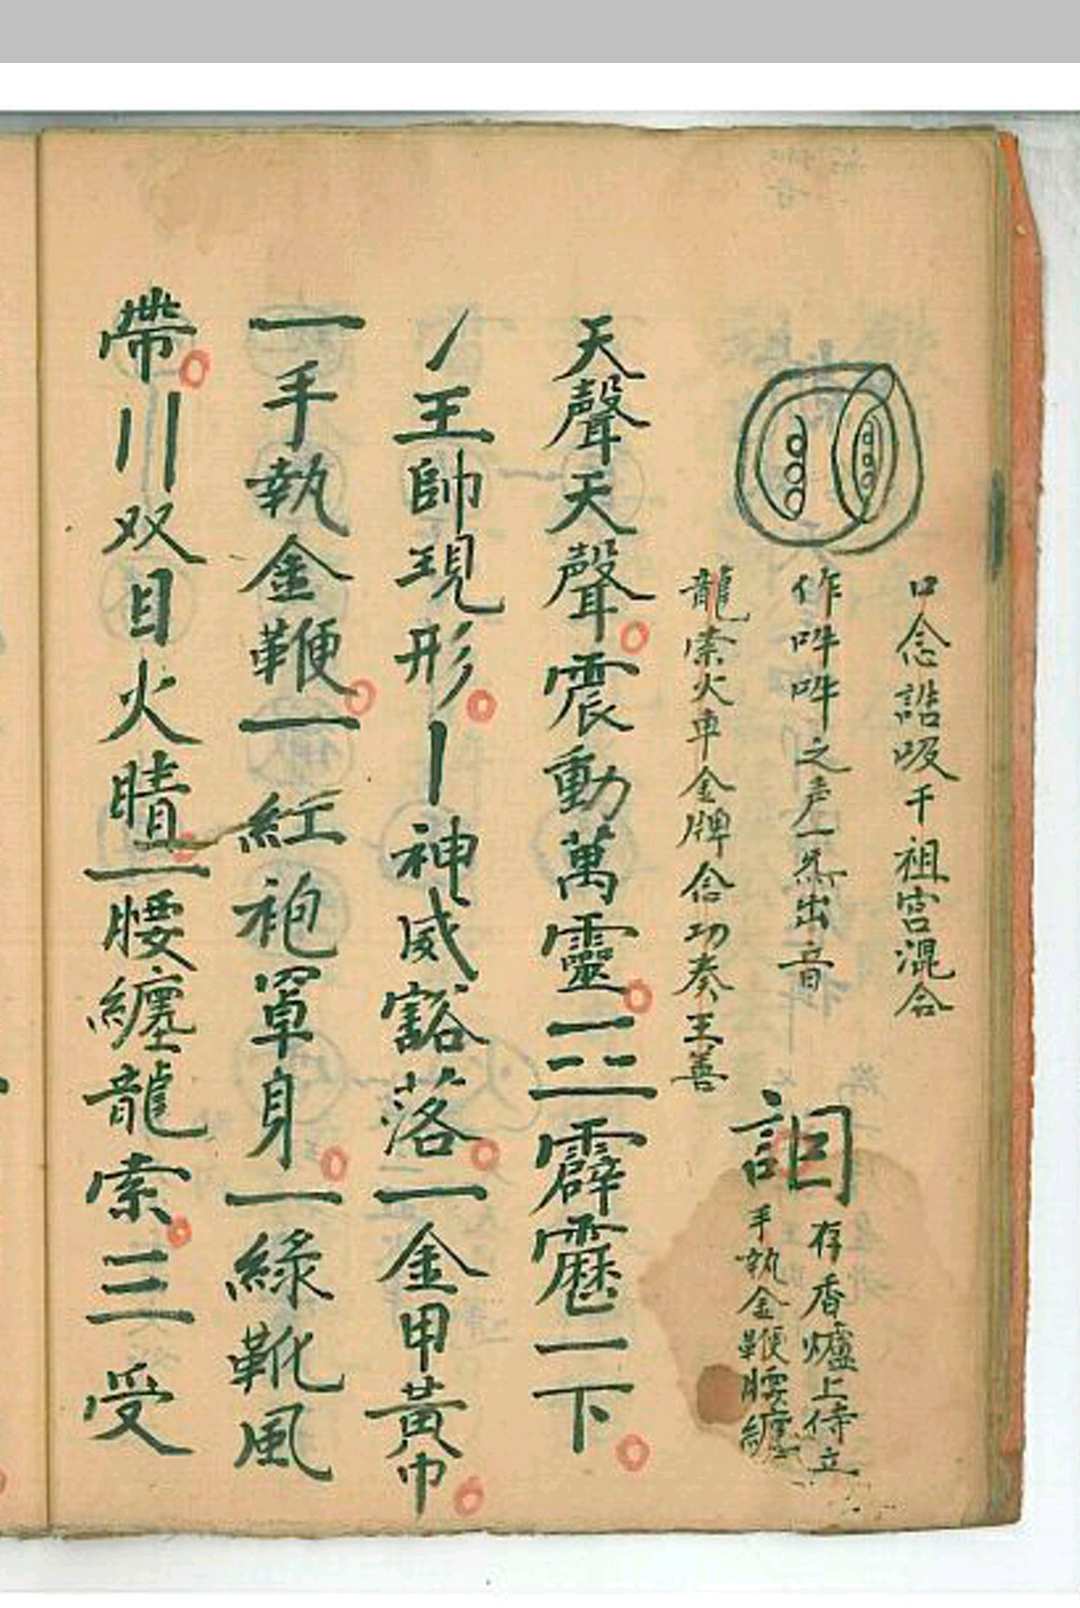 口念誥吸干祖宫混合
作吽吽之声一炁出音
龍索火車金牌合功奏王善
存香爐上侍立
手執金鞭腰纏
天聲天聲震動萬靈一二二霹靂一下
王帥現形神威豁落一金甲黃巾
一手執金鞭一紅袍罩身一綠靴風
帶川双目火睛一腰纏龍索三受